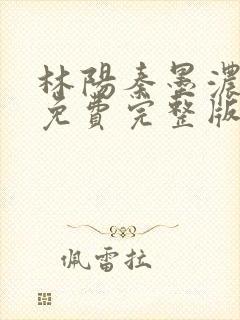 林陽秦墨濃
免費完整版
佩雷拉